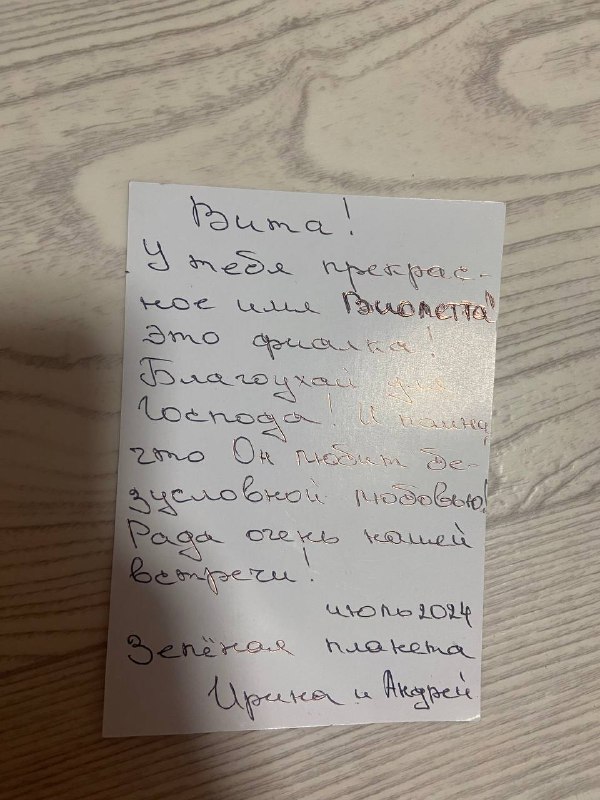 Вита!
У тебя прекрас-
ное имя Виолетта!
Это фиалка!
Благоухай для
Господа! И помни,
что Он любит бе-
зусловной любовью!
Рада очень нашей
встречи!
июль 2024
Зелёная планета
Ирина и Андрей